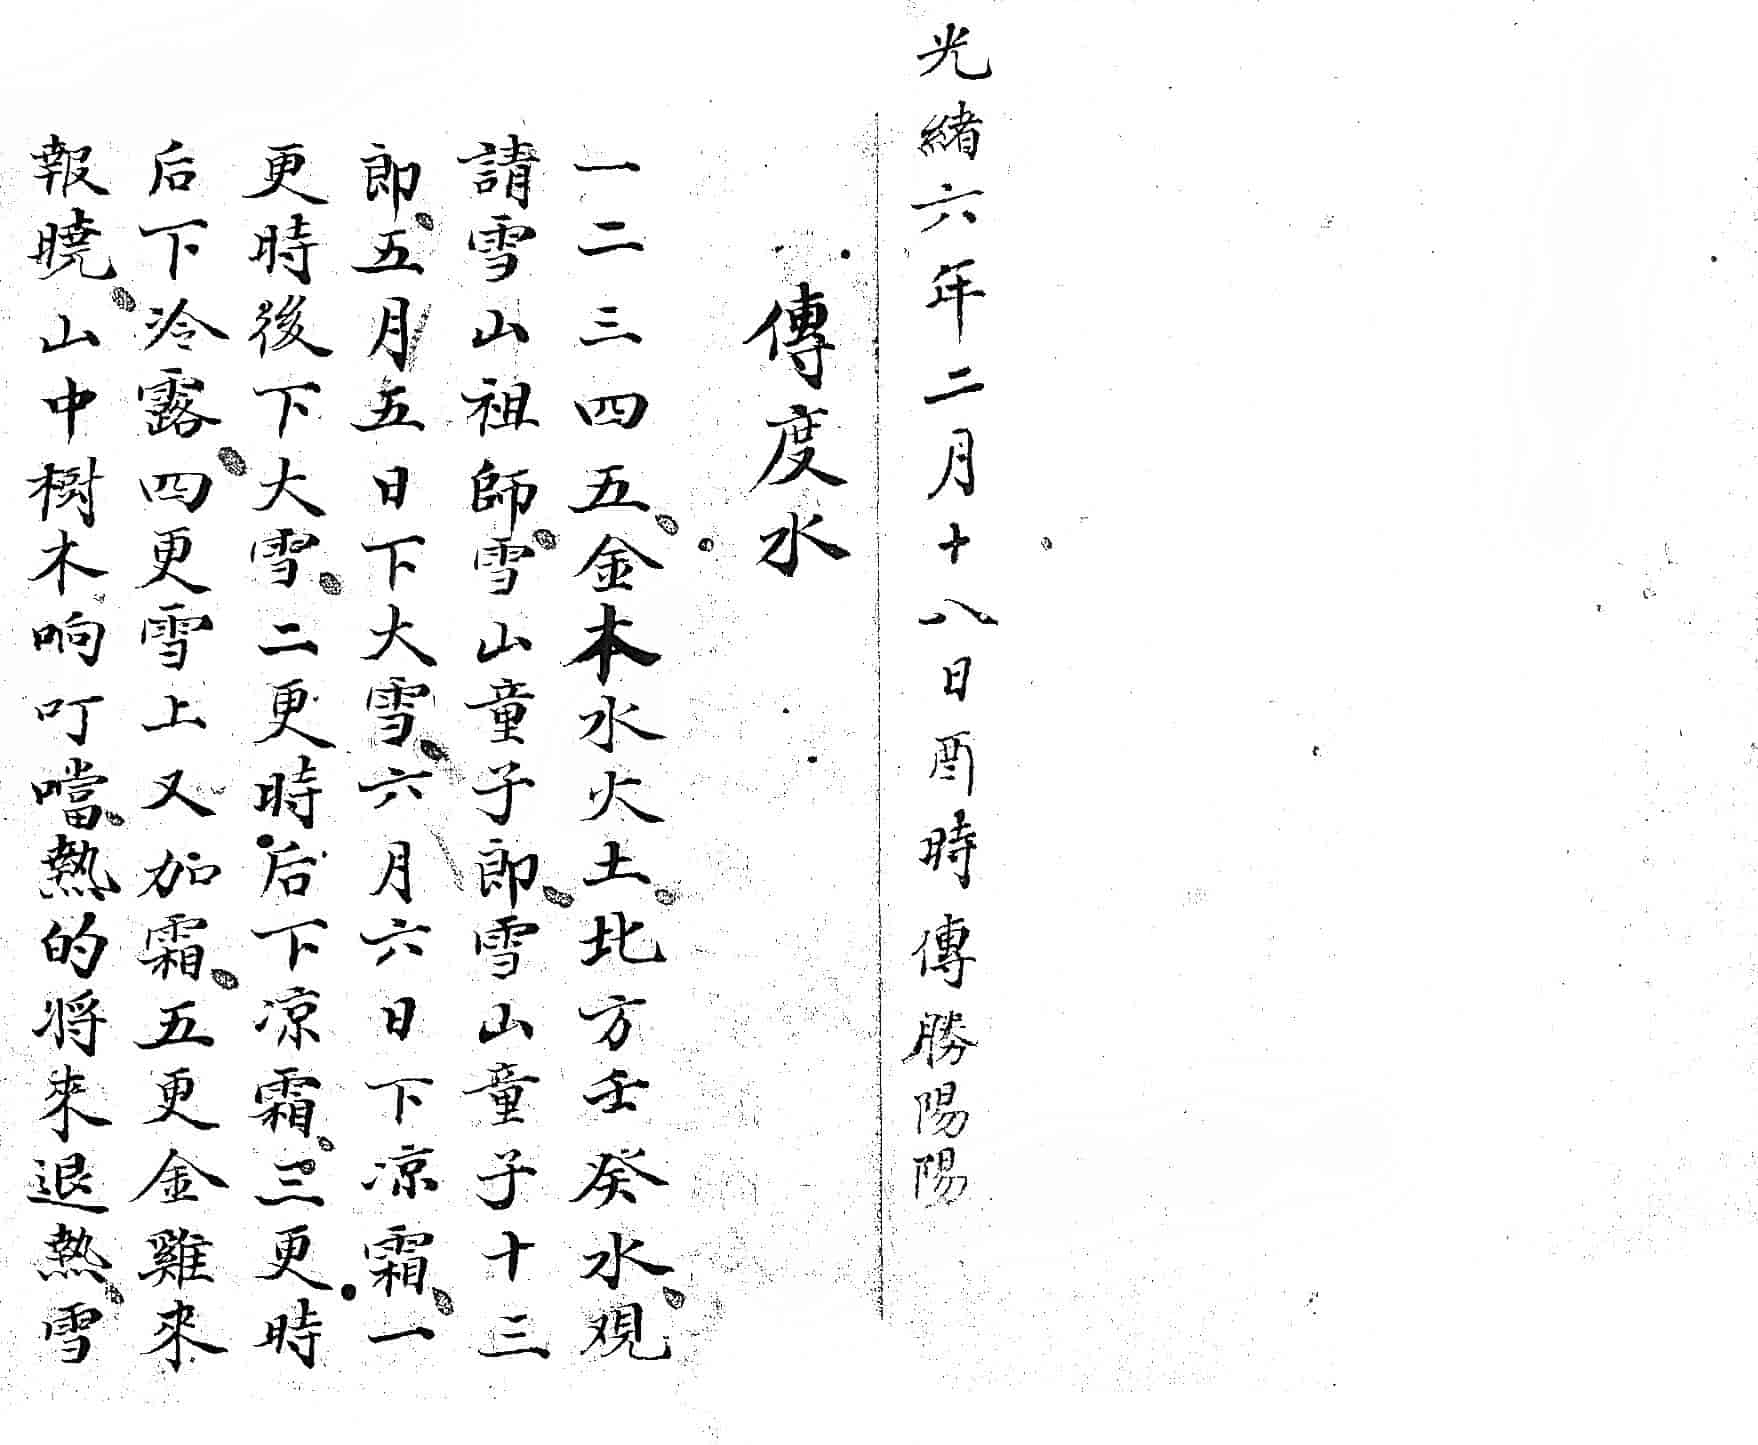 光緒六年二月十八日酉時傳勝陽陽
傳度水
一二三四五金本水火土北方壬癸水观
請雪山祖師雪山童子郎雪山童子十三
郎五月五日下大雪六月六日下凉霜一
更時後下大雪二更時后下凉霜三更時
后下冷露四更雪上又加霜五更金雞來
報曉山中樹木响叮噹熱的将來退熱雪